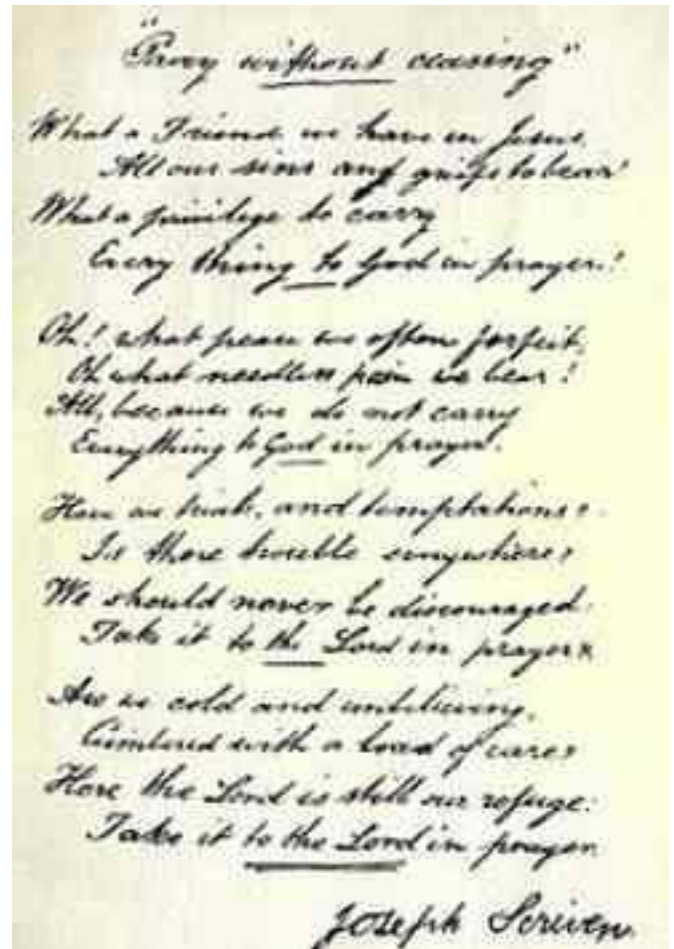 "Pray without ceasing"
What a Friend we have in Jesus,
All our sins and griefs to bear!
What a privilege to carry
Every thing to God in prayer!
Oh! what peace we often forfeit,
Oh what needless pain we bear!
All, because we do not carry
Everything to God in prayer.
Have we trials, and temptations?
Is there trouble anywhere?
We should never be discouraged.
Take it to the Lord in prayer.
Are we cold and unbelieving,
Cumbered with a load of care?
Here the Lord is still our refuge:
Take it to the Lord in prayer.
Joseph Scriven